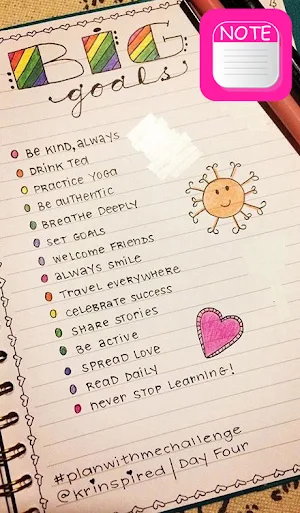 BIG
NOTE
goals
BE KIND, ALWAYS
DRINK TEA
PRACTICE YOGA
Be AUTHENTIC
BREATHE DEEPLY
SET GOALS
WELCOME FRIENDS
ALWAYS SMILE
TRAVEL EVERYWHERE
CELEBRATE SUCCESS
SHARE STORIES
Be ACTIVE
SPREAD LOVE
READ DAILY
never STOP Learning!
#planwithmechallenge
@krinspired | Day Four